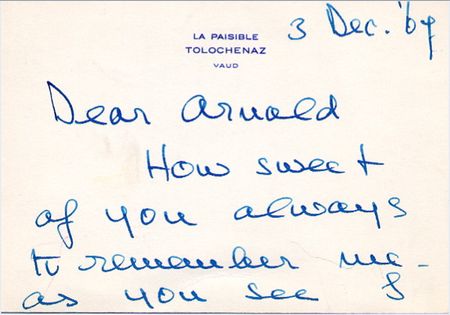 LA PAISIBLE
TOLOCHENAZ
VAUD
3 Dec. '69
Dear Arnold
How sweet
of you always
to remember me -
as you see I